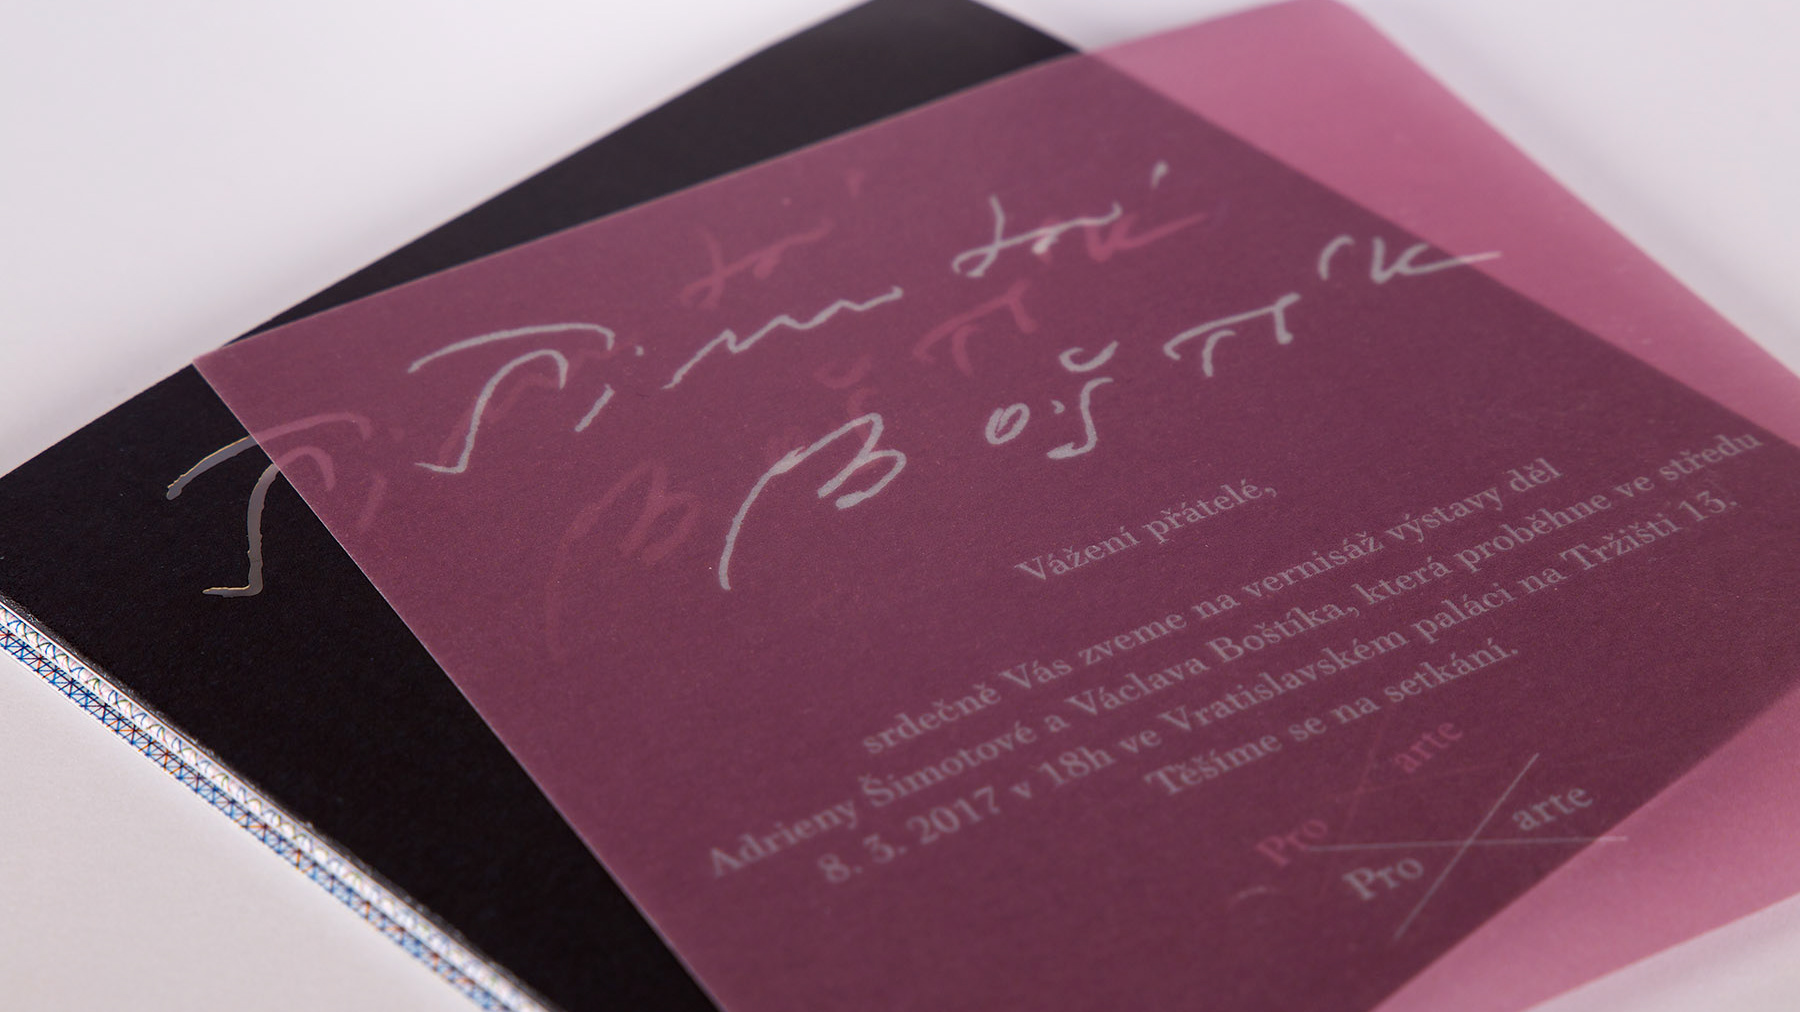 Šimotová
Boštík
Vážení přátelé,
srdečně Vás zveme na vernisáž výstavy děl
Adrieny Šimotové a Václava Boštíka, která proběhne ve středu
8. 3. 2017 v 18h ve Vratislavském paláci na Tržišti 13.
Těšíme se na setkání.
Pro arte
Pro arte